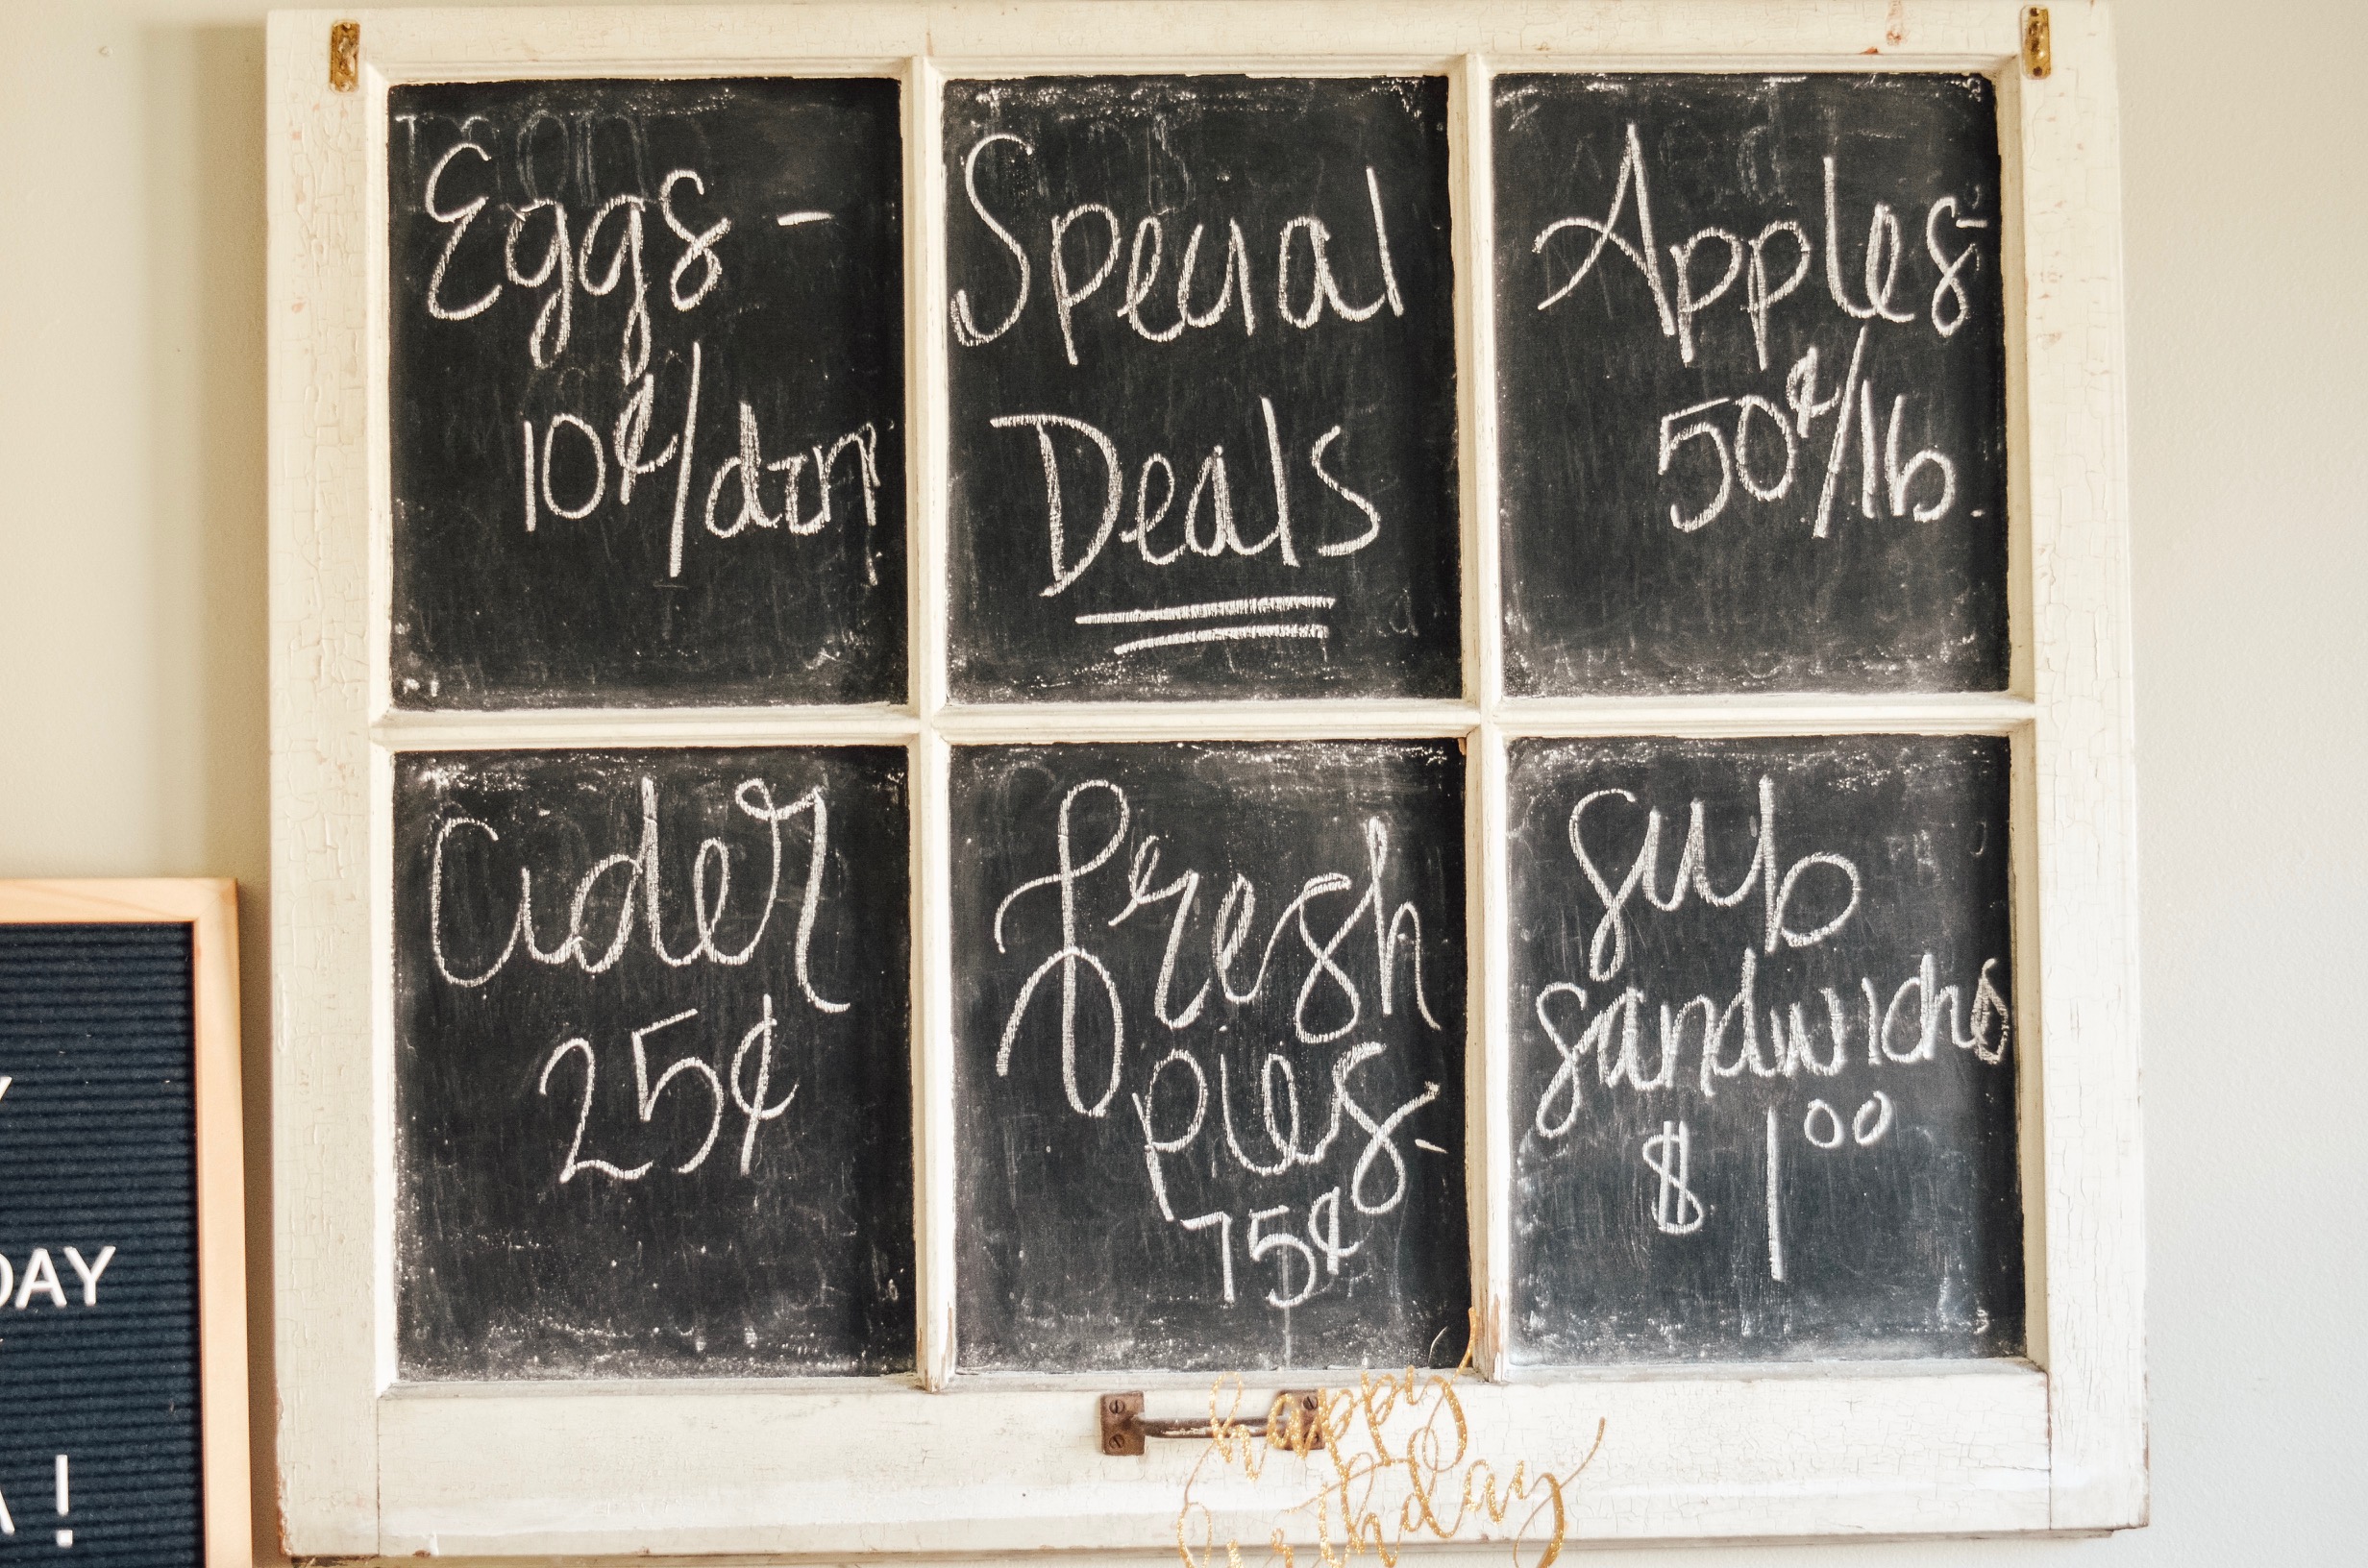 Eggs -
10¢/dozn
Special
Deals
Apples-
50¢/lb.
Cider
25¢
fresh
pies-
75¢
sub
sandwichs
$1.00
DAY
!
happy
birthday